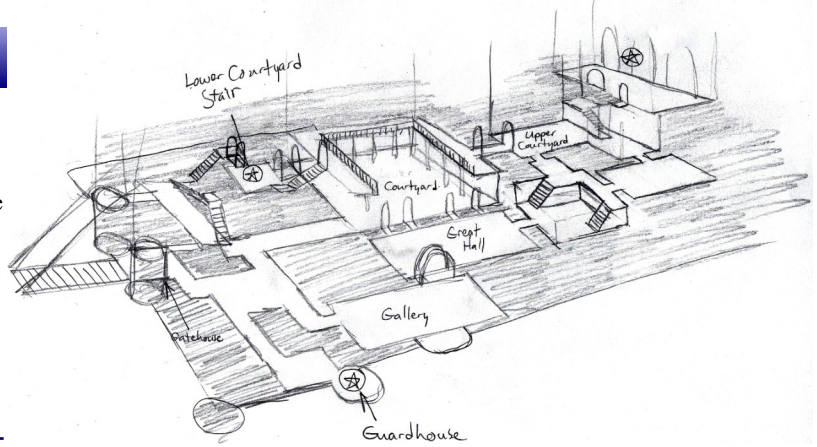 Lower Courtyard
Stair
Upper
Courtyard
Lower
Courtyard
Great
Hall
Gallery
Gatehouse
Guardhouse